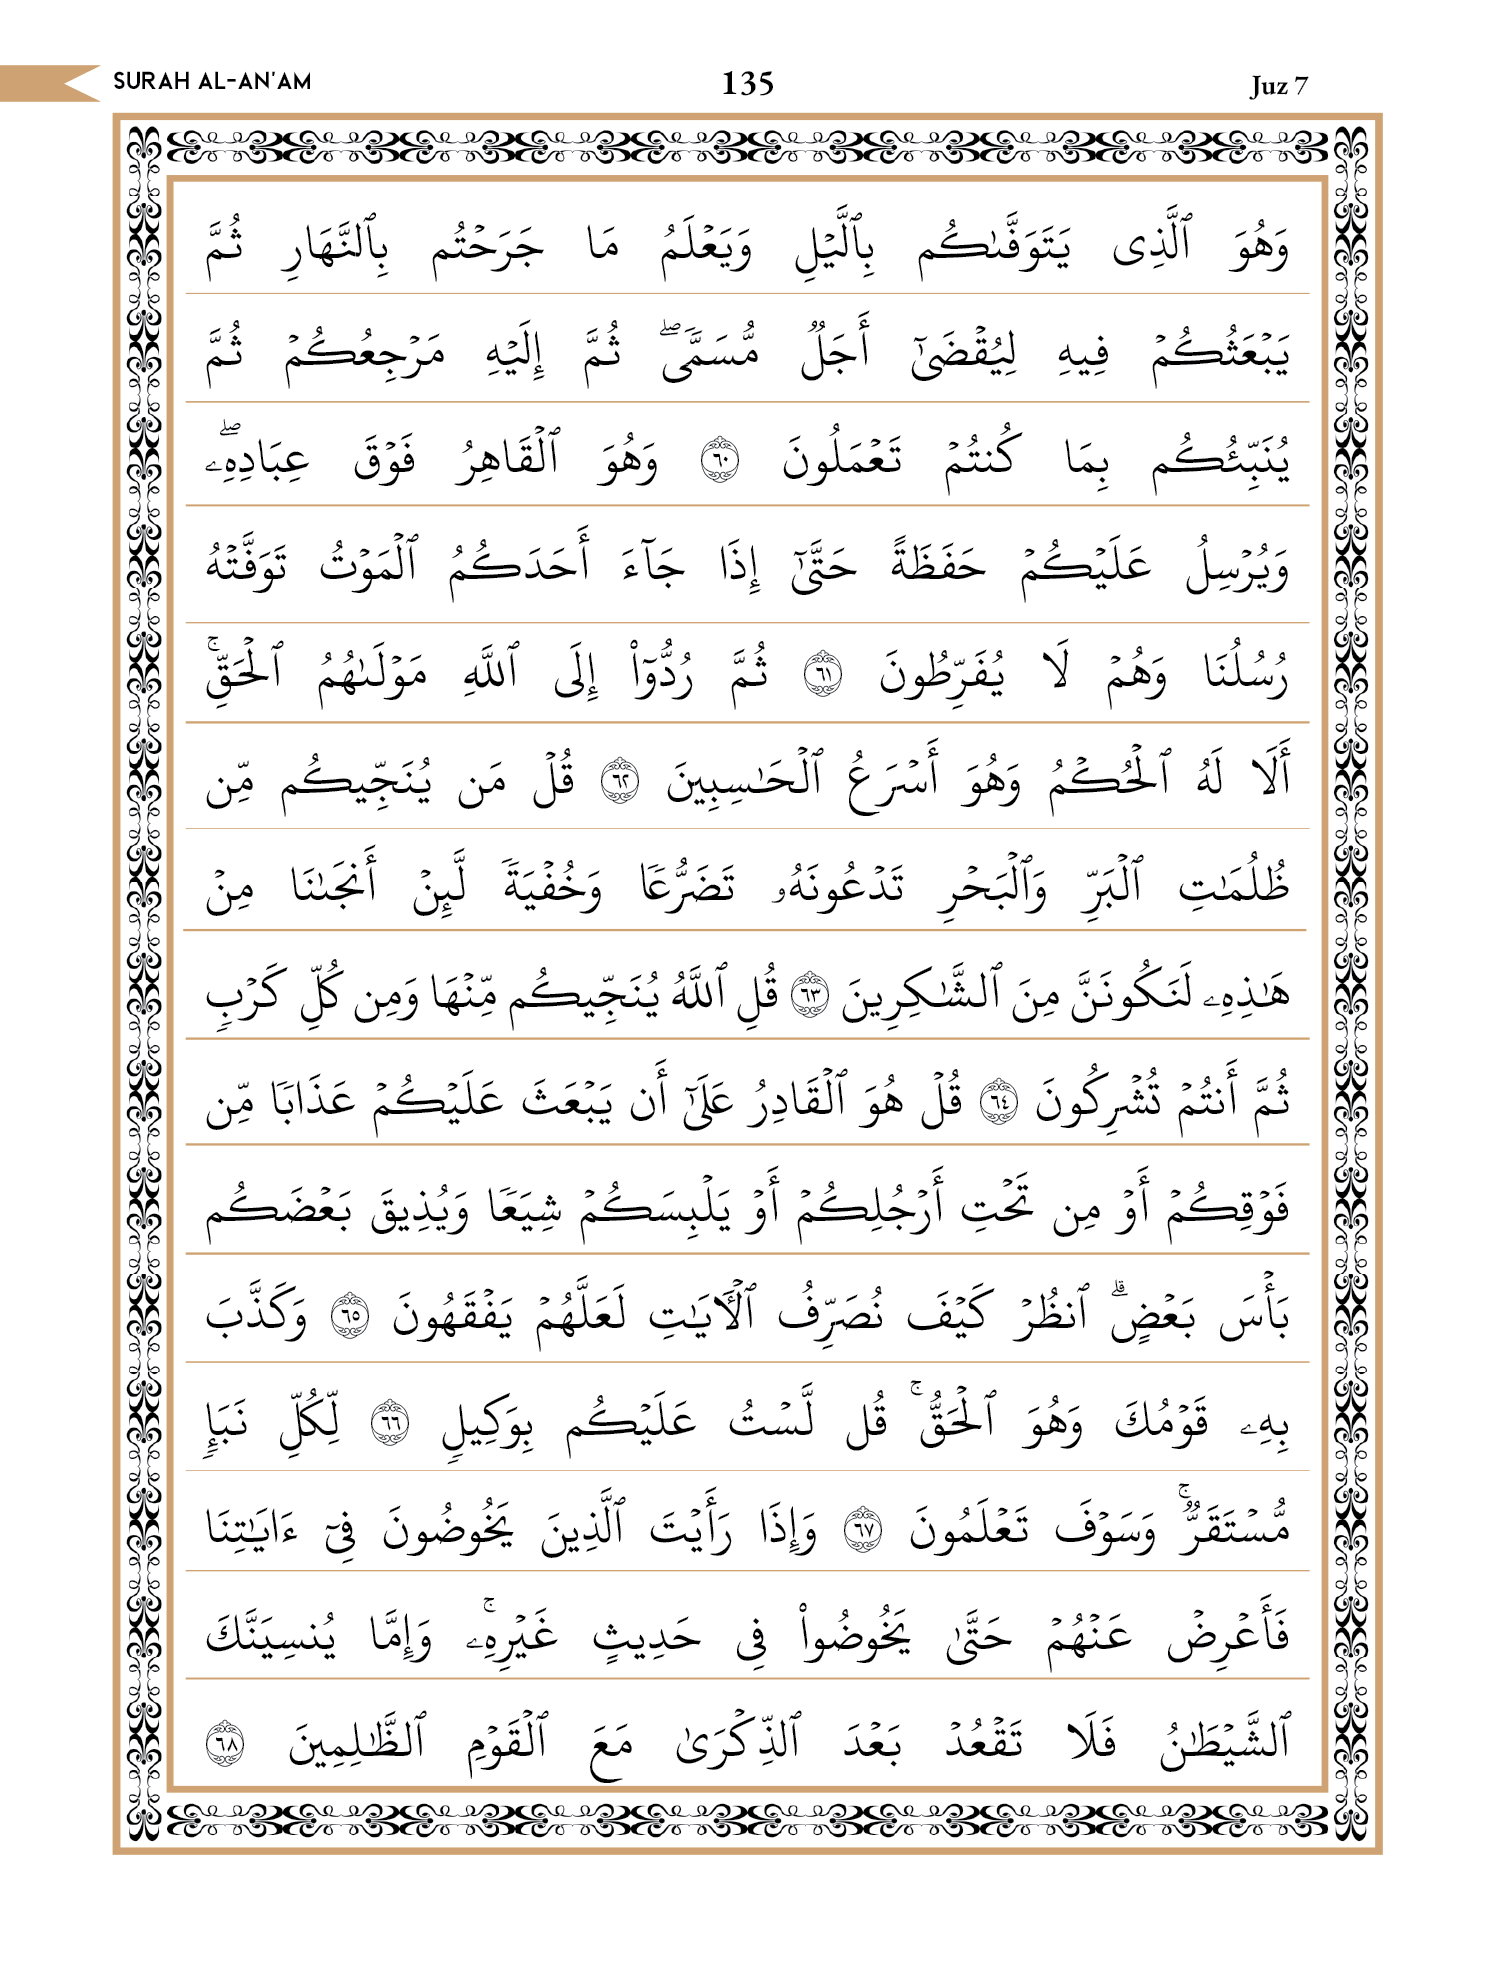 SURAH AL-AN'AM
135
Juz 7
وَهُوَ ٱلَّذِى يَتَوَفَّىٰكُم بِٱلَّيْلِ وَيَعْلَمُ مَا جَرَحْتُم بِٱلنَّهَارِ ثُمَّ
يَبْعَثُكُمْ فِيهِ لِيُقْضَىٰٓ أَجَلٌ مُّسَمًّى ۖ ثُمَّ إِلَيْهِ مَرْجِعُكُمْ ثُمَّ
يُنَبِّئُكُم بِمَا كُنتُمْ تَعْمَلُونَ ٦٠ وَهُوَ ٱلْقَاهِرُ فَوْقَ عِبَادِهِۦ ۖ
وَيُرْسِلُ عَلَيْكُمْ حَفَظَةً حَتَّىٰٓ إِذَا جَآءَ أَحَدَكُمُ ٱلْمَوْتُ تَوَفَّتْهُ
رُسُلُنَا وَهُمْ لَا يُفَرِّطُونَ ٦١ ثُمَّ رُدُّوٓا۟ إِلَى ٱللَّهِ مَوْلَىٰهُمُ ٱلْحَقِّ ۚ
أَلَا لَهُ ٱلْحُكْمُ وَهُوَ أَسْرَعُ ٱلْحَـٰسِبِينَ ٦٢ قُلْ مَن يُنَجِّيكُم مِّن
ظُلُمَـٰتِ ٱلْبَرِّ وَٱلْبَحْرِ تَدْعُونَهُۥ تَضَرُّعًا وَخُفْيَةً لَّئِنْ أَنجَىٰنَا مِنْ
هَـٰذِهِۦ لَنَكُونَنَّ مِنَ ٱلشَّـٰكِرِينَ ٦٣ قُلِ ٱللَّهُ يُنَجِّيكُم مِّنْهَا وَمِن كُلِّ كَرْبٍ
ثُمَّ أَنتُمْ تُشْرِكُونَ ٦٤ قُلْ هُوَ ٱلْقَادِرُ عَلَىٰٓ أَن يَبْعَثَ عَلَيْكُمْ عَذَابًا مِّن
فَوْقِكُمْ أَوْ مِن تَحْتِ أَرْجُلِكُمْ أَوْ يَلْبِسَكُمْ شِيَعًا وَيُذِيقَ بَعْضَكُم
بَأْسَ بَعْضٍ ۗ ٱنظُرْ كَيْفَ نُصَرِّفُ ٱلْـَٔايَـٰتِ لَعَلَّهُمْ يَفْقَهُونَ ٦٥ وَكَذَّبَ
بِهِۦ قَوْمُكَ وَهُوَ ٱلْحَقُّ ۚ قُل لَّسْتُ عَلَيْكُم بِوَكِيلٍ ٦٦ لِّكُلِّ نَبَإٍ
مُّسْتَقَرٌّ ۚ وَسَوْفَ تَعْلَمُونَ ٦٧ وَإِذَا رَأَيْتَ ٱلَّذِينَ يَخُوضُونَ فِىٓ ءَايَـٰتِنَا
فَأَعْرِضْ عَنْهُمْ حَتَّىٰ يَخُوضُوا۟ فِى حَدِيثٍ غَيْرِهِۦ ۚ وَإِمَّا يُنسِيَنَّكَ
ٱلشَّيْطَـٰنُ فَلَا تَقْعُدْ بَعْدَ ٱلذِّكْرَىٰ مَعَ ٱلْقَوْمِ ٱلظَّـٰلِمِينَ ٦٨